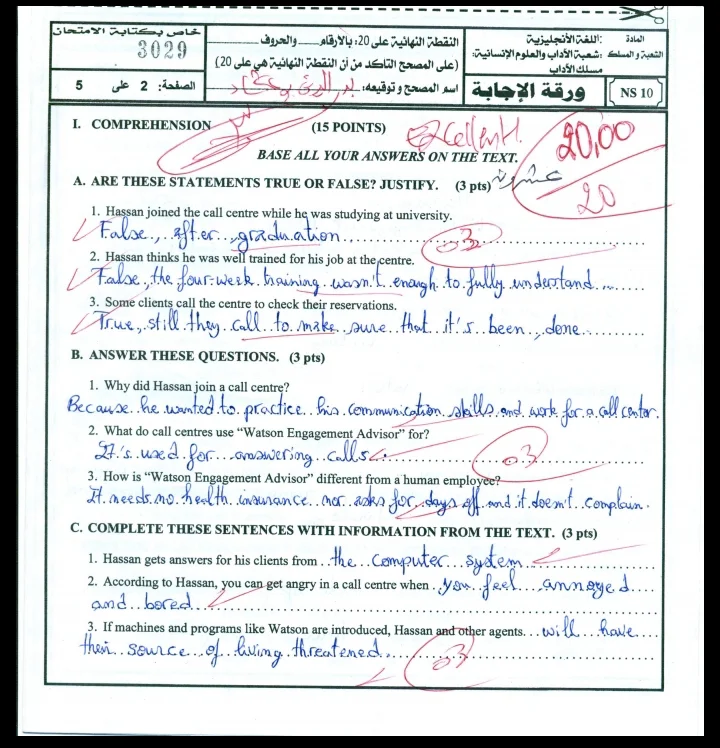 خاص بكتابة الامتحان
3029
الصفحة: 2 على 5
النقطة النهائية على 20: بالأرقام والحروف
(على المصحح التأكد من أن النقطة النهائية هي على 20)
اسم المصحح و توقيعه:
المادة :اللغة الأنجليزية
الشعبة و المسلك :شعبة الآداب والعلوم الإنسانية:
مسلك الآداب
ورقة الإجابة
NS 10
I. COMPREHENSION (15 POINTS) Excellent.
20,00
20
عشرون
BASE ALL YOUR ANSWERS ON THE TEXT.
A. ARE THESE STATEMENTS TRUE OR FALSE? JUSTIFY. (3 pts)
1. Hassan joined the call centre while he was studying at university.
False, after graduation 03
2. Hassan thinks he was well trained for his job at the centre.
False, the four-week training wasn't enough to fully understand...
3. Some clients call the centre to check their reservations.
True, still they call to make sure that it's been done.
B. ANSWER THESE QUESTIONS. (3 pts)
1. Why did Hassan join a call centre?
Because he wanted to practice his communication skills and work for a call center.
2. What do call centres use “Watson Engagement Advisor” for?
It's used for answering calls. 03
3. How is “Watson Engagement Advisor” different from a human employee?
It needs no health insurance nor asks for days off and it doesn't complain.
C. COMPLETE THESE SENTENCES WITH INFORMATION FROM THE TEXT. (3 pts)
1. Hassan gets answers for his clients from the computer system
2. According to Hassan, you can get angry in a call centre when you feel annoyed
and bored.
3. If machines and programs like Watson are introduced, Hassan and other agents will have
their source of living threatened. 03